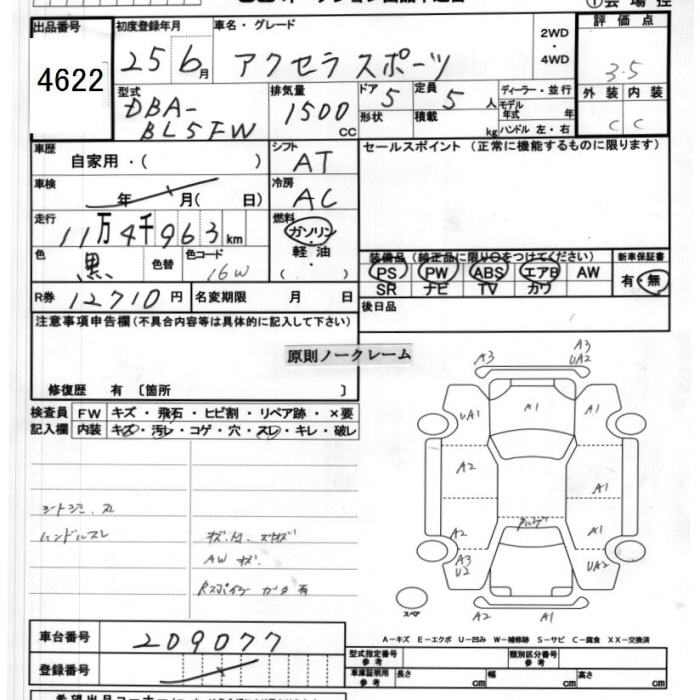 出品番号 初度登録年月 車名・グレード 2WD・4WD 評価点
4622 25 6月 アクセラスポーツ 3.5
型式 排気量 ドア 定員 ディーラー・並行 外装 内装
DBA-BL5FW 1500cc 5 5人 モデル年式 年 C C
形状 積載 kg ハンドル 左・右
車歴 自家用・( ) シフト AT セールスポイント(正常に機能するものに限ります)
車検 年 月( 日) 冷房 AC
走行 11万4千963km 燃料 ガソリン・軽油・( )
色 黒 色替 色コード 16W
装備品(純正品に限り○をつけてください) 新車保証書
PS PW ABS エアB AW 有・無
SR ナビ TV カワ
R券 12710円 名変期限 月 日 後日品
注意事項申告欄(不具合内容等は具体的に記入して下さい)
原則ノークレーム
修復歴 有 〔箇所 〕
検査員記入欄 FW キズ・飛石・ヒビ割・リペア跡・×要
内装 キズ・汚レ・コゲ・穴・スレ・キレ・破レ
ハンドルスレ
AW キズ
A3 A3
UA2
UA1 A1
A2 A1
A2 A1
A3 UA2
U2
A2 A1
スペア
A-キズ E-エクボ U-凹み W-補修跡 S-サビ C-腐食 XX-交換済
車台番号 209077
登録番号
型式指定番号 参考 類別区分番号 参考
車庫証明用 参考 長さ cm 幅 cm 高さ cm